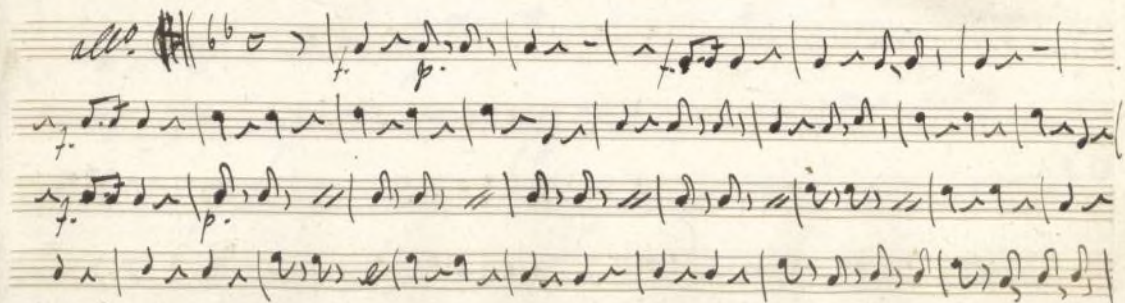 allo. f. p. f.
f.
f. p.